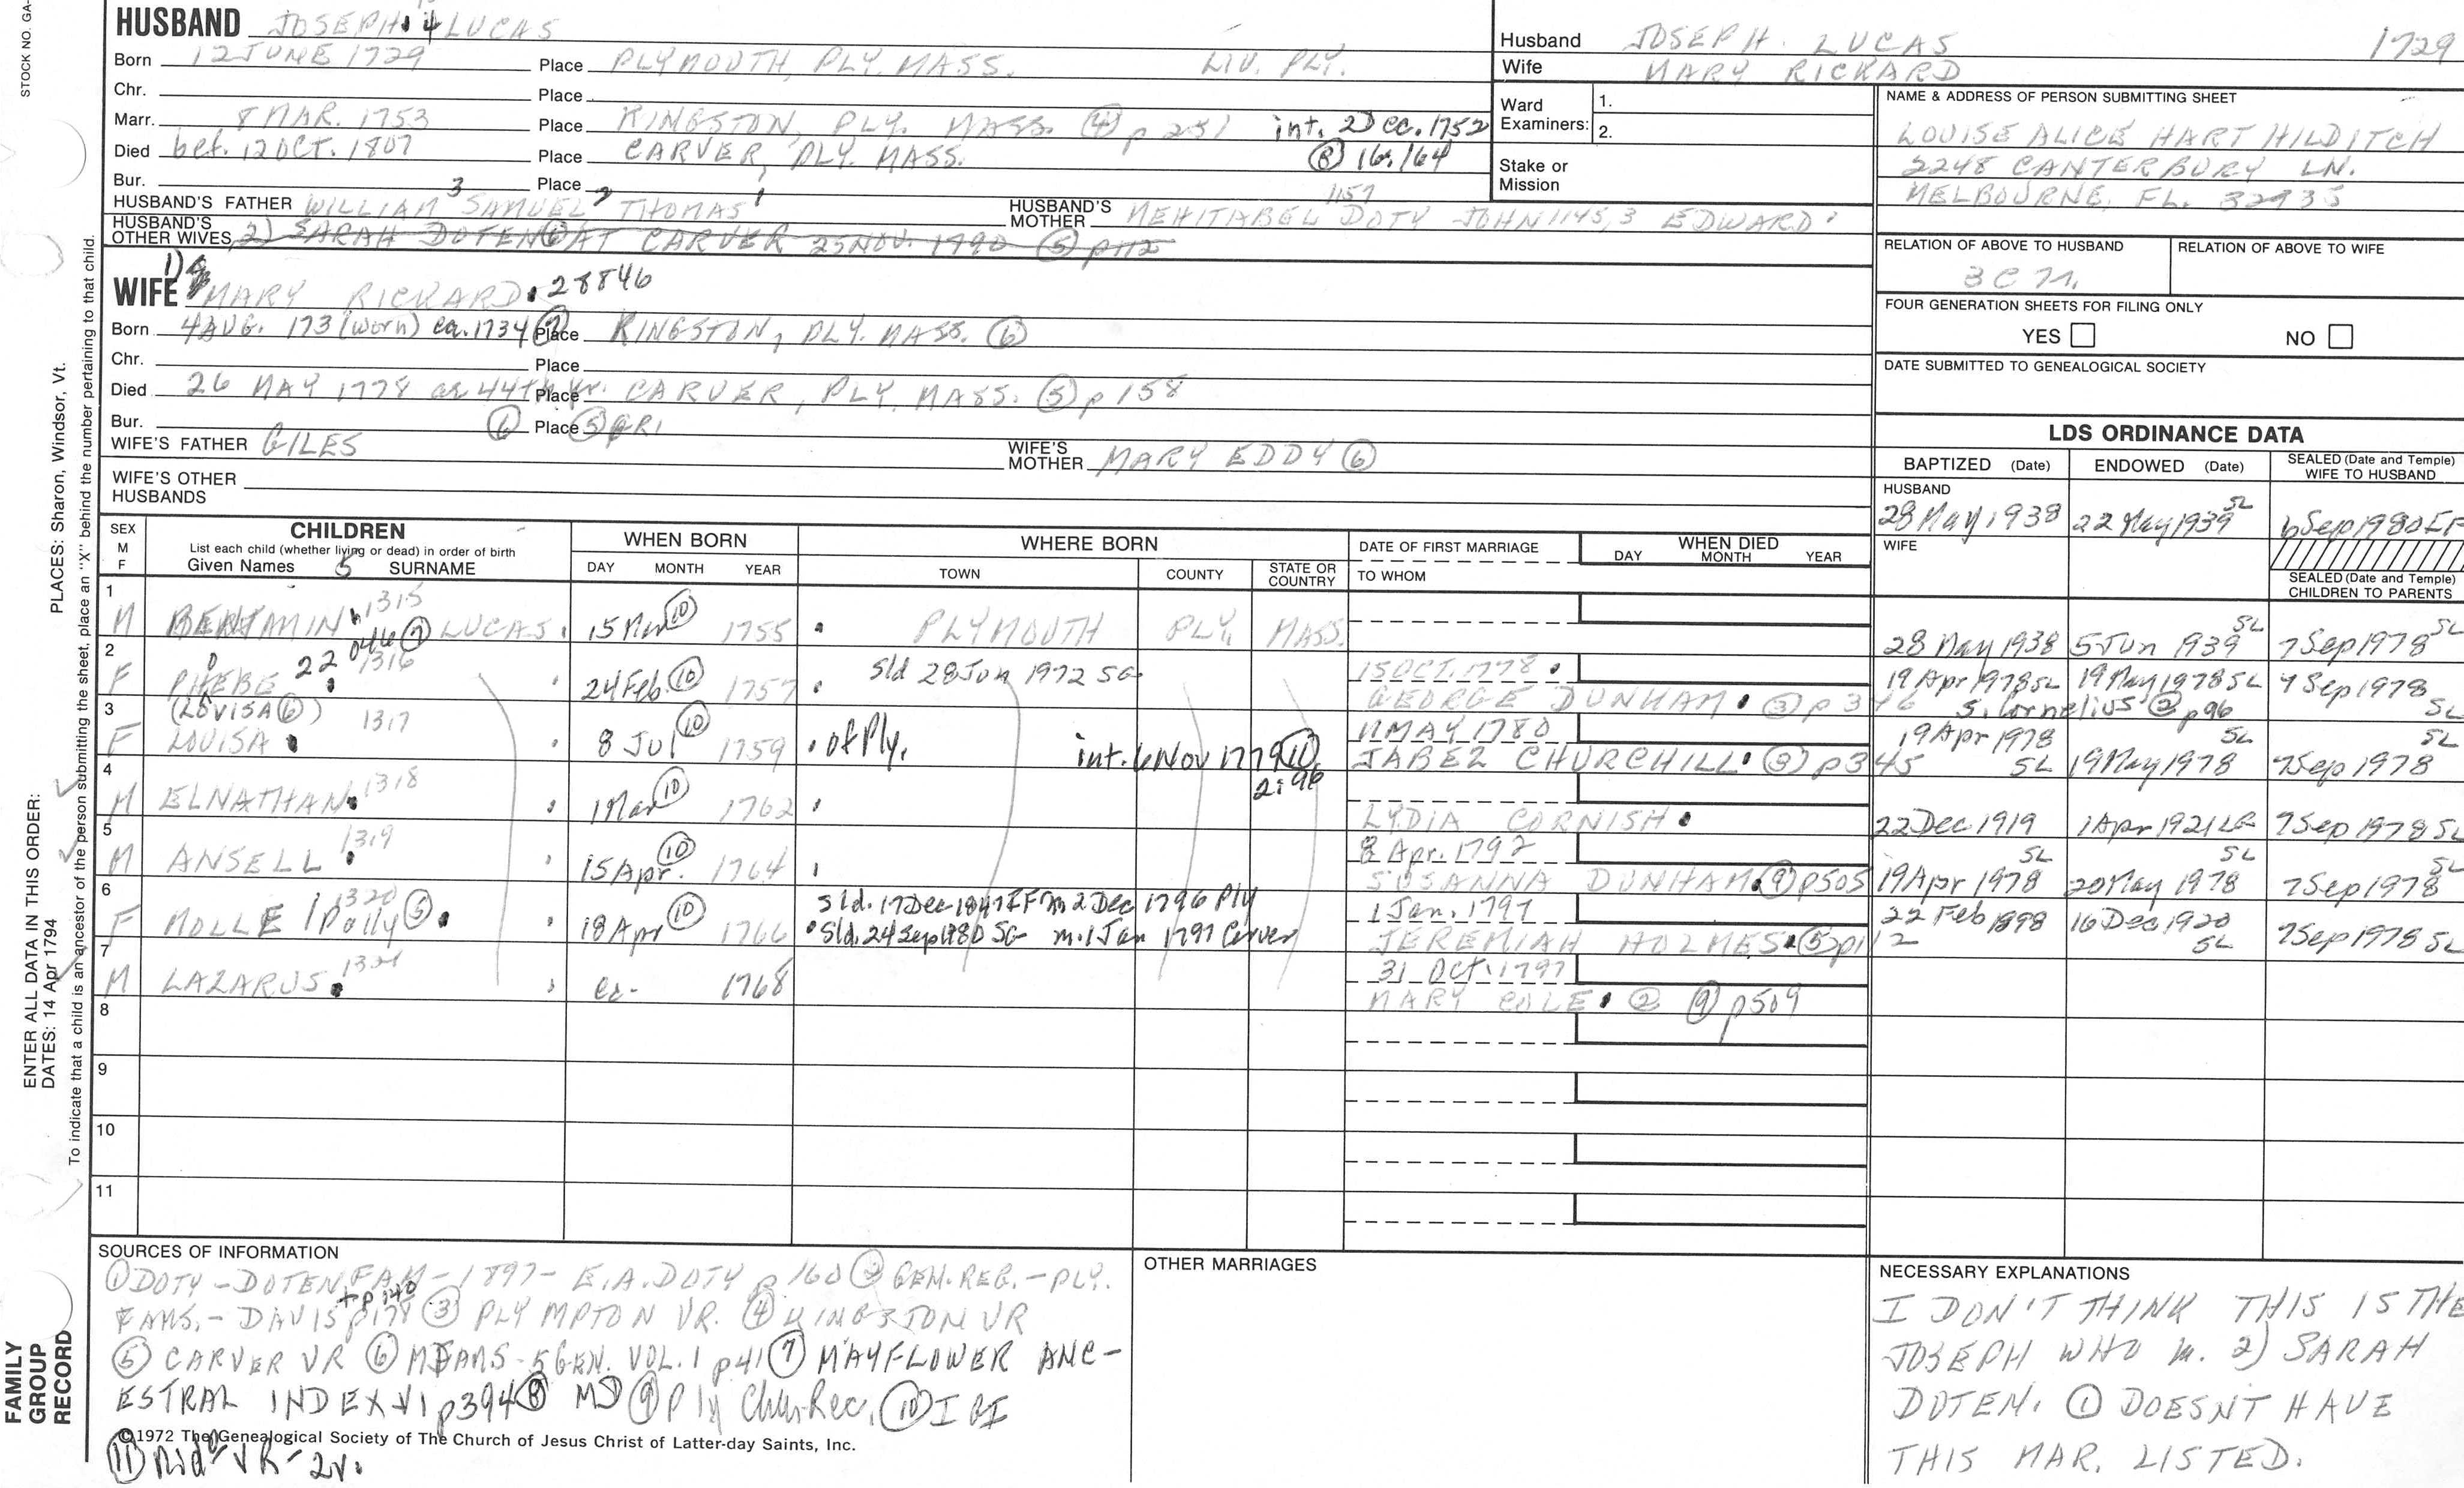 STOCK NO. GA-
HUSBAND JOSEPH 4 LUCAS
Born 12 JUNE 1729 Place PLYMOUTH, PLY. MASS. LIV. PLY.
Chr. Place
Marr. 8 MAR. 1753 Place KINGSTON, PLY. MASS. ④ p 251 int. 2 Dec. 1752
Died bef. 12 OCT. 1807 Place CARVER, PLY. MASS. ⑧ 16:164
Bur. Place
HUSBAND'S FATHER WILLIAM 3 SAMUEL 2 THOMAS 1 HUSBAND'S MOTHER MEHITABEL DOTY JOHN EDWARD 1
1157
HUSBAND'S OTHER WIVES 2) SARAH DOTEN ⑥ AT CARVER 25 NOV. 1790 ⑤ p 112
1)
WIFE MARY RICKARD 28846
Born 4 AUG. 173 (worn) ca. 1734 ⑦ Place KINGSTON, PLY. MASS. ⑥
Chr. Place
Died 26 MAY 1778 in 44th yr. Place CARVER, PLY. MASS. ⑤ p 158
Bur. ⑥ Place ⑤ GR1
WIFE'S FATHER GILES WIFE'S MOTHER MARY EDDY ⑥
WIFE'S OTHER HUSBANDS
Husband JOSEPH LUCAS 1729
Wife MARY RICKARD
Ward Examiners: 1.
2.
Stake or Mission
NAME & ADDRESS OF PERSON SUBMITTING SHEET
LOUISE ALICE HART HILDITCH
2248 CANTERBURY LN.
MELBOURNE, FL. 32935
RELATION OF ABOVE TO HUSBAND RELATION OF ABOVE TO WIFE
FOUR GENERATION SHEETS FOR FILING ONLY
YES NO
DATE SUBMITTED TO GENEALOGICAL SOCIETY
LDS ORDINANCE DATA
BAPTIZED (Date) ENDOWED (Date) SEALED (Date and Temple) WIFE TO HUSBAND
HUSBAND
28 May 1938 22 May 1939 SL 6 Sep 1980 EF
WIFE
SEALED (Date and Temple) CHILDREN TO PARENTS
SEX M F CHILDREN WHEN BORN WHERE BORN DATE OF FIRST MARRIAGE WHEN DIED
List each child (whether living or dead) in order of birth
Given Names 5 SURNAME DAY MONTH YEAR TOWN COUNTY STATE OR COUNTRY TO WHOM DAY MONTH YEAR
1 M BENJAMIN 1315 LUCAS 15 Mar ⑩ 1755 PLYMOUTH PLY. MASS. 28 May 1938 5 Jun 1939 SL 7 Sep 1978 SL
2 F PHEBE 1316 24 Feb. ⑩ 1757 sld 28 Jun 1972 SG 15 OCT. 1778 19 Apr 1978 SL 19 May 1978 SL 7 Sep 1978
GEORGE DUNHAM ③ p 346 s. Cornelius ② p 96 SL
3 F (LOVISA ⑥) LOUISA 1317 8 Jul ⑩ 1759 of Ply. int. 6 Nov 1779 ⑪ 2:96 11 MAY 1780 19 Apr 1978 SL 19 May 1978 SL 7 Sep 1978 SL
JABEZ CHURCHILL ③ p 345
4 M ELNATHAN 1318 1 Mar ⑩ 1762 LYDIA CORNISH 22 Dec 1919 1 Apr 1921 LG 7 Sep 1978 SL
5 M ANSELL 1319 15 Apr. ⑩ 1764 8 Apr. 1792 19 Apr 1978 SL 20 May 1978 SL 7 Sep 1978 SL
SUSANNA DUNHAM ⑨ p505
6 F MOLLE / Polly ⑤ 1320 18 Apr ⑩ 1766 sld. 17 Dec 1847 EF m 2 Dec 1796 Ply 1 Jan. 1797 22 Feb 1898 16 Dec 1920 SL 7 Sep 1978 SL
sld. 24 Sep 1980 SG m. 1 Jan 1797 Carver JEREMIAH HOLMES ⑤ p112
7 M LAZARUS 1321 ca. 1768 31 Oct. 1797
MARY COLE ② ⑨ p509
8
9
10
11
SOURCES OF INFORMATION
① DOTY-DOTEN FAM-1897- E.A. DOTY p 160 ② GEN. REG.-PLY.
+p 140
FAMS.-DAVIS p174 ③ PLYMPTON VR. ④ KINGSTON VR
⑤ CARVER VR ⑥ MFAMS-5 GEN. VOL. 1 p 41 ⑦ MAYFLOWER ANC-
ESTRAL INDEX V1 p394 ⑧ MD ⑨ Ply Chu Rec. ⑩ IGI
©1972 The Genealogical Society of The Church of Jesus Christ of Latter-day Saints, Inc.
⑪ VR-2v.
OTHER MARRIAGES
NECESSARY EXPLANATIONS
I DON'T THINK THIS IS THE
JOSEPH WHO m. 2) SARAH
DOTEN. ① DOESN'T HAVE
THIS MAR. LISTED.
FAMILY GROUP RECORD
ENTER ALL DATA IN THIS ORDER:
DATES: 14 Apr 1794 PLACES: Sharon, Windsor, Vt.
To indicate that a child is an ancestor of the person submitting the sheet, place an "X" behind the number pertaining to that child.